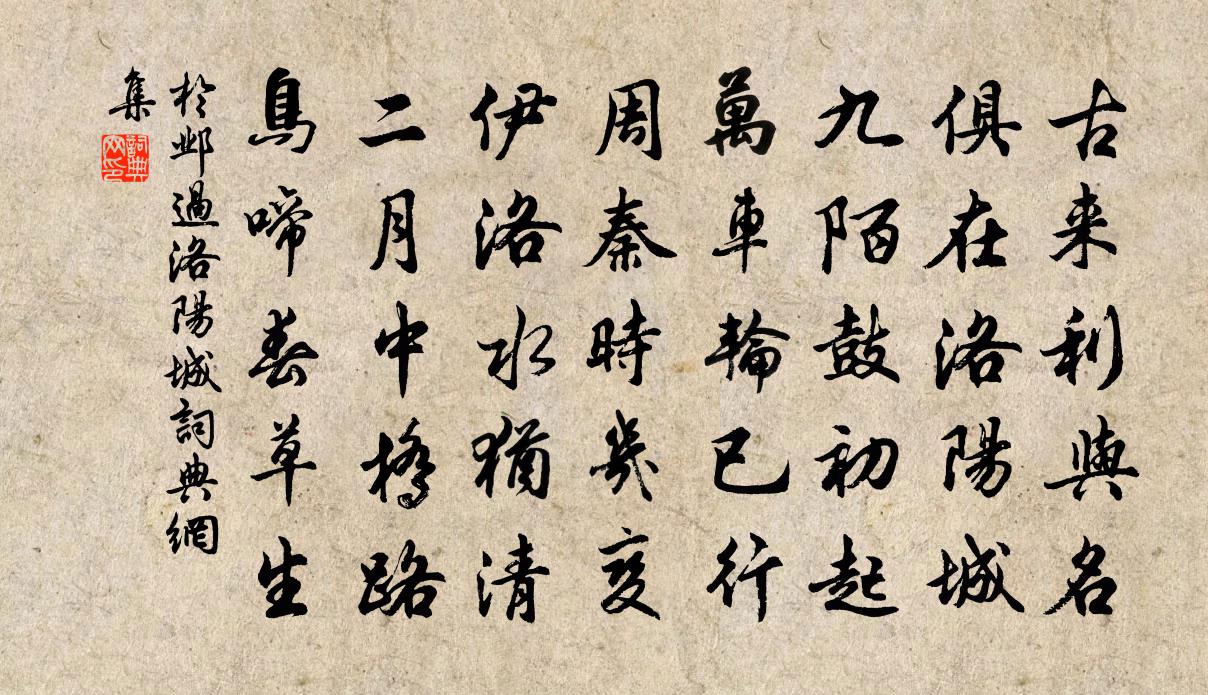 古来利與名
俱在洛陽城
九陌鼓初起
萬車輪已行
周秦時幾變
伊洛水猶清
二月中橋路
鳥啼春草生
於鄴過洛陽城詞典網
集
詞典
网印